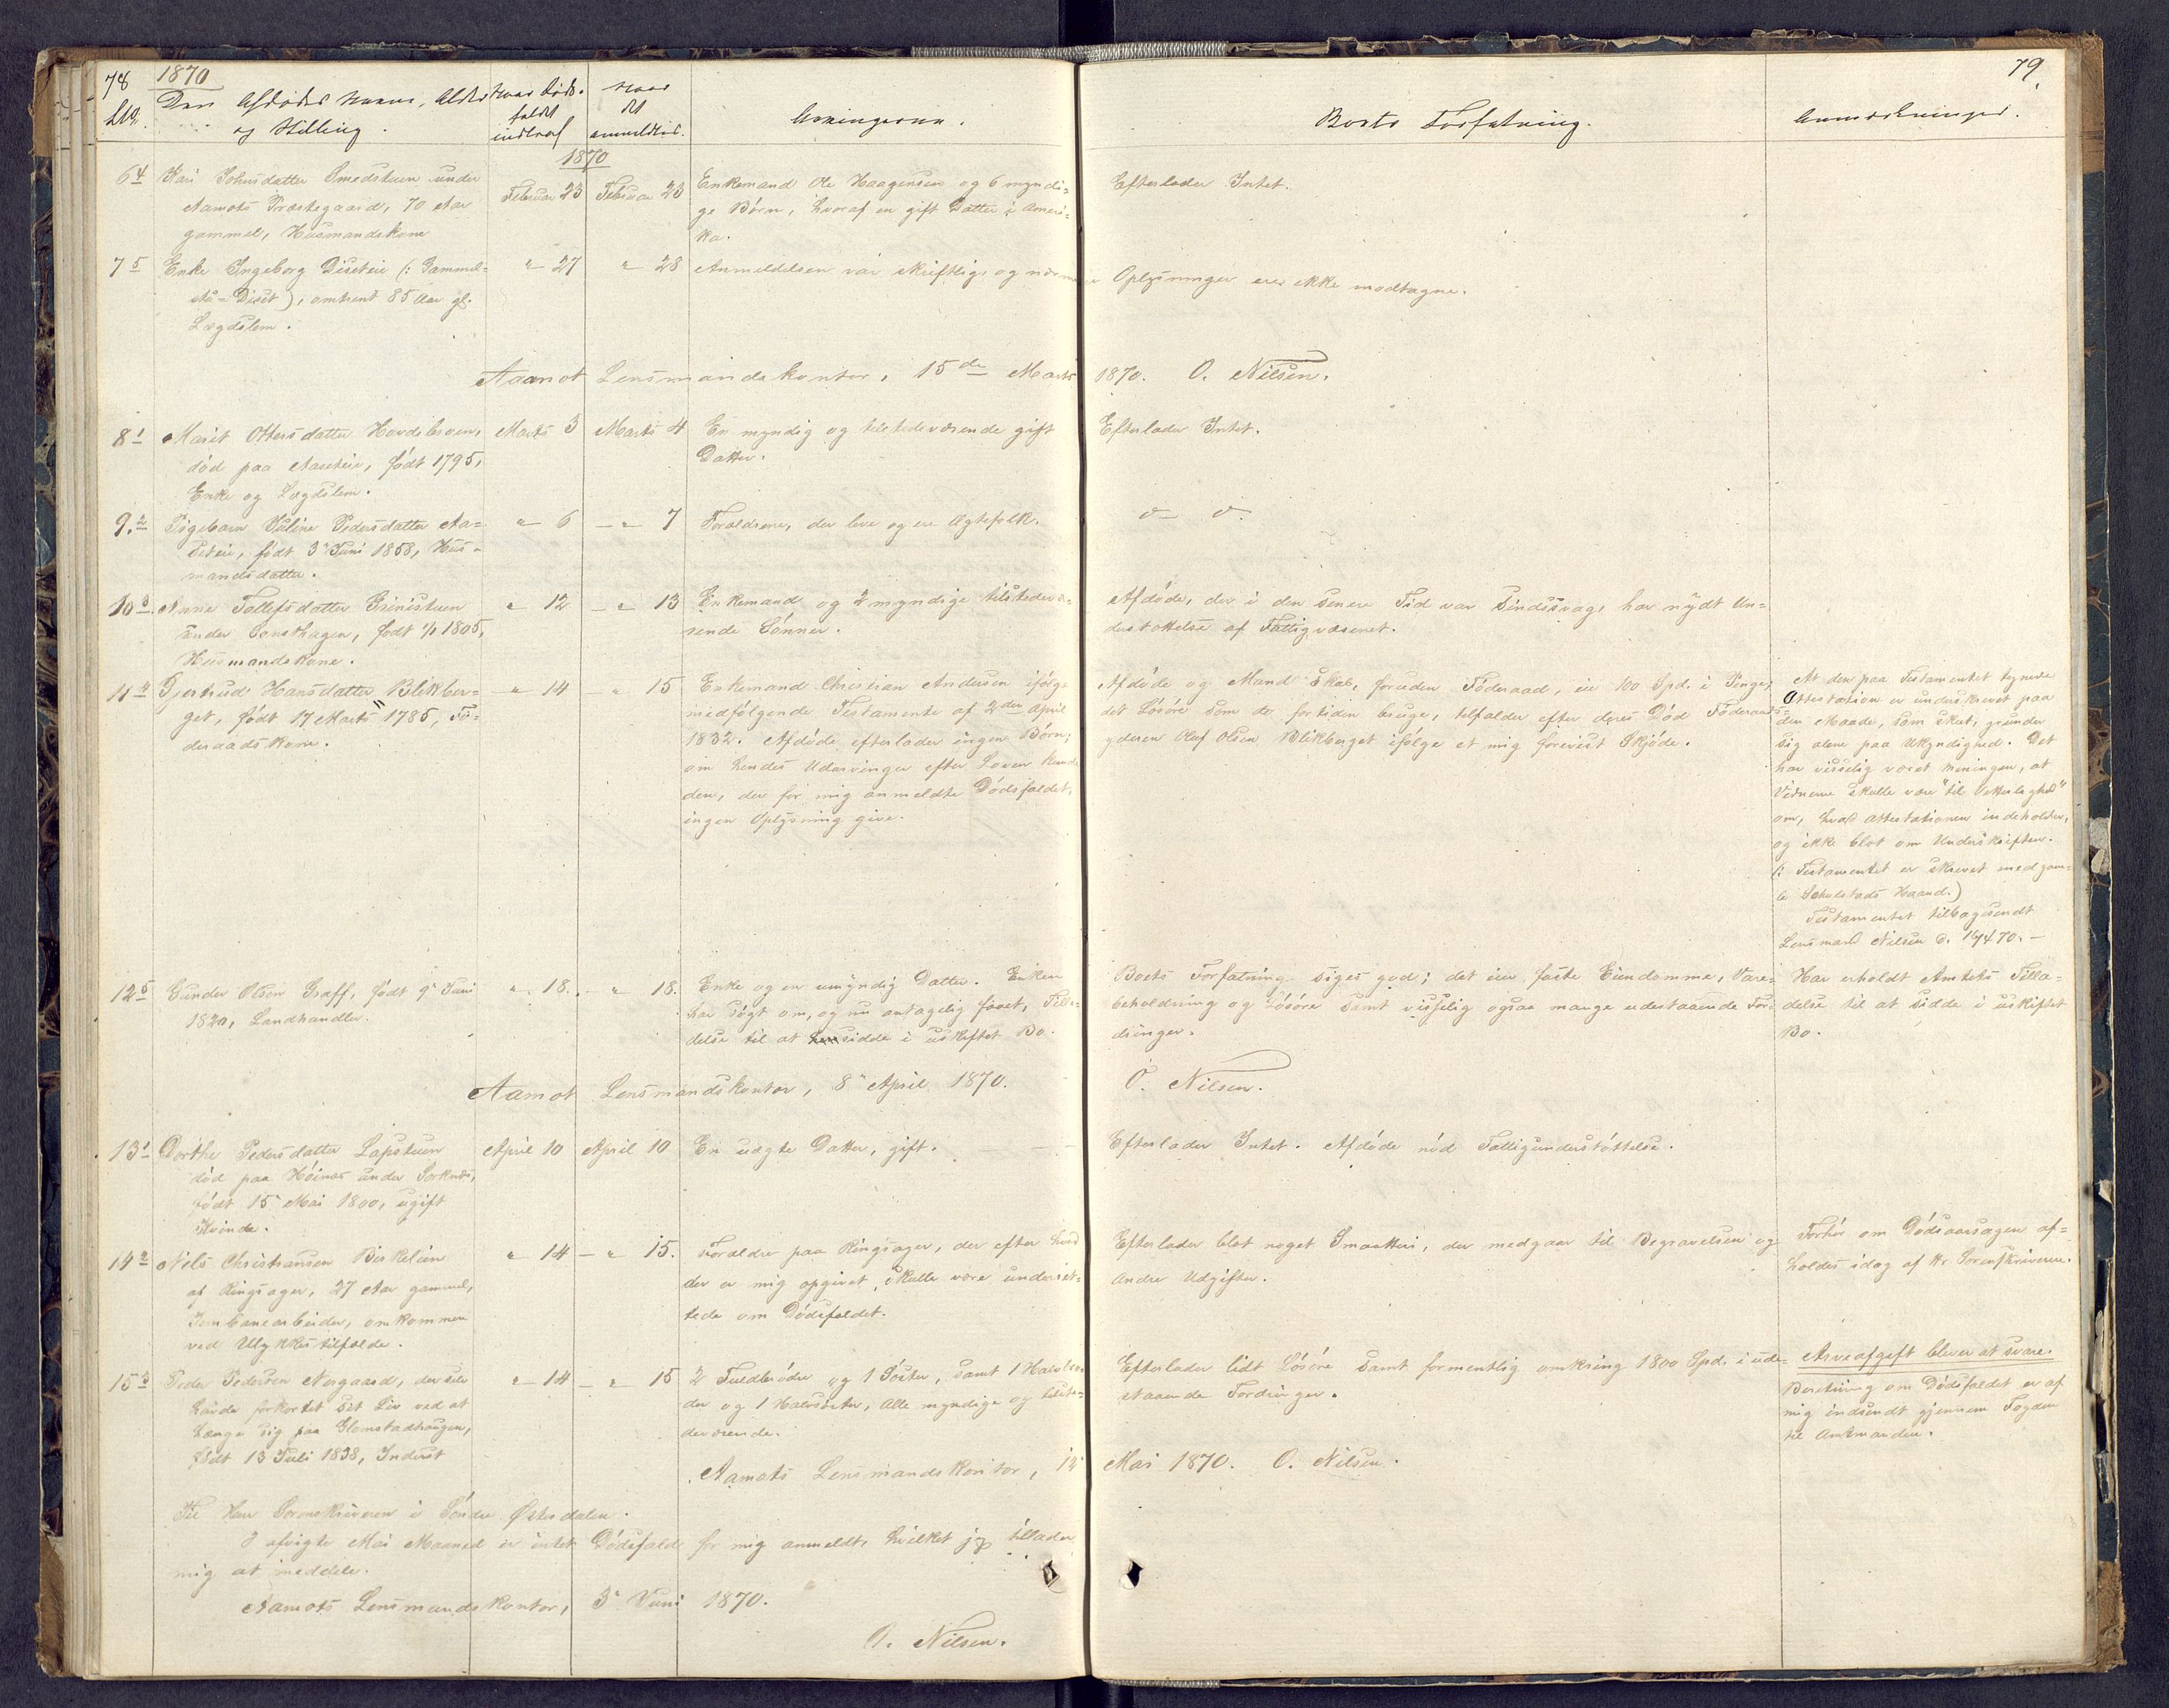 78
1870
No.
Den Afdødes Navn, Alder
og Stilling.
Naar Døds-
faldet
indtraf
Naar
det
anmeldtes.
Arvingerne.
1870
6 4
Kari Johnsdatter Smedstuen under
Aamots Præstegaard, 70 Aar
gammel, Husmandskone
Februar 23
Februar 23
Enkemand Ole Haagensen og 6 myndi-
ge Børn, hvoraf en gift Datter i Ameri-
ka.
7 5
Enke Ingeborg Diseteie (: Gammel-
Diset), omtrent 85 Aar gl.
Lægdslem.
" 27
" 28
Anmeldelsen var skriftlig, og nærmere
Aamot Lensmandskontor, 15de Marts
8 1
Marit Ottersdatter Hovdebroen,
død paa Aaseteie, født 1795,
Enke og Lægdslem.
Marts 3
Marts 4
En myndig og tilstedeværende gift
Datter.
9. 2
Pigebarn Juline Pedersdatter Aa-
seteie, født 3 Juni 1858, Hus-
mandsdatter.
" 6
- " 7
Forældrene, der leve og ere Ægtefolk.
10 3
Anne Tollefsdatter Grinistuen
under, født 1805,
Husmandskone.
" 12
- " 13
Enkemand og 2 myndige tilstedevæ-
rende Sønner.
11 4
Gjertrud Hansdatter Blikber-
get, født 17 Marts 1785, Fø-
deraadskone.
" 14
- " 15
Enkemand Christian Andersen ifølge
medfølgende Testamente af 2den April
1832. Afdøde efterlader ingen Børn;
om hendes Udarvinger efter Loven kunde
den, der for mig anmeldte Dødsfaldet,
ingen Oplysning give.
12 5
Gunder Olsen Graff, født 9 Juni
1820, Landhandler.
" 18.
- " 18.
Enke og en umyndig Datter. Enken
har søgt om, og nu antagelig faaet, Tilla-
delse til at sidde i uskiftet Bo.
Aamot Lensmandskontor, 8 April 1870.
13 1
Dorthe Pedersdatter Lapstuen
død paa Høinæs under Sorknæs,
født 15 Mai 1800, ugift
Kvinde.
April 10
April 10
En uægte Datter, gift.
14 2
Nils Christiansen Birkelien
af Ringsager, 27 Aar gammel,
Jernbanearbeider, omkommen
ved Ulykkestilfælde.
" 14
- " 15.
Forældre paa Ringsager, der efter hvad
der er mig opgivet, skulle være underret-
tede om Dødsfaldet.
15 3
Peder Pedersen Norgaard, der selv
havde forkortet sit Liv ved at
hænge sig paa Glomstadhaugen,
født 13 Juli 1838, Inderst
" 14
- " 15
2 Fuldbrødre og 1 Søster, samt 1 Halvbro-
der og 1 Halvsøster, Alle myndige og tilste-
deværende.
Aamots Lensmandskontor, 14
Til Herr Sorenskriveren i Søndre Østerdalen.
I afvigte Mai Maaned er intet Dødsfald for mig anmeldt, hvilket jeg tillader
mig at meddele.
Aamots Lensmandskontor, 3 Juni 1870.
O. Nilsen.
79.
Boets Forfatning.
Anmærkninger.
Efterlader Intet.
Oplysninger ere ikke modtagne.
1870. O. Nilsen.
Efterlader Intet.
Afdøde, der i den senere Tid var sindssvag, har nydt Un-
derstøttelse af Fattigvæsenet.
Afdøde og Mand skal, foruden Føderaad, eie 100 Spd. i Penge,
det Løsøre som de for tiden bruge, tilfalder efter deres Død Føderaads-
yderen Oluf Olsen Blikberget ifølge et mig forevist Skjøde.
At den paa Testamentet tegnede
Attestation er underskrevet paa
den Maade, som skeet, grunder
sig alene paa Ukyndighed. Det
har visselig været Meningen, at
Vidnerne skulle være "til Vitterlighed"
om, hvad Attestationen indeholder,
og ikke blot om Underskriften.
(: Testamentet er skrevet med gam-
le Haand.)
Testamentet tilbagesendt
Lensmand Nilsen d. 19/4 70. -
Boets Forfatning siges god; det eier faste Eiendomme, Vare-
beholdning og Løsøre samt visselig ogsaa mange udestaaende For-
dringer.
Har erholdt Amtets Tilla-
delse til at sidde i uskiftet
Bo.
O. Nilsen.
Efterlader Intet. Afdøde nød Fattigunderstøttelse.
Efterlader blot noget Smaatteri, der medgaar til Begravelsen og
andre Udgifter.
Forhør om Dødsaarsagen af-
holdes idag af Hr. Sorenskriveren.
Efterlader lidt Løsøre samt formentlig omkring 1800 Spd. i ude-
staaende Fordringer.
Arveafgift bliver at svare.
Beretning om Dødsfaldet er af
mig indsendt gjennem Fogden
til Amtmanden.
Mai 1870. O. Nilsen.